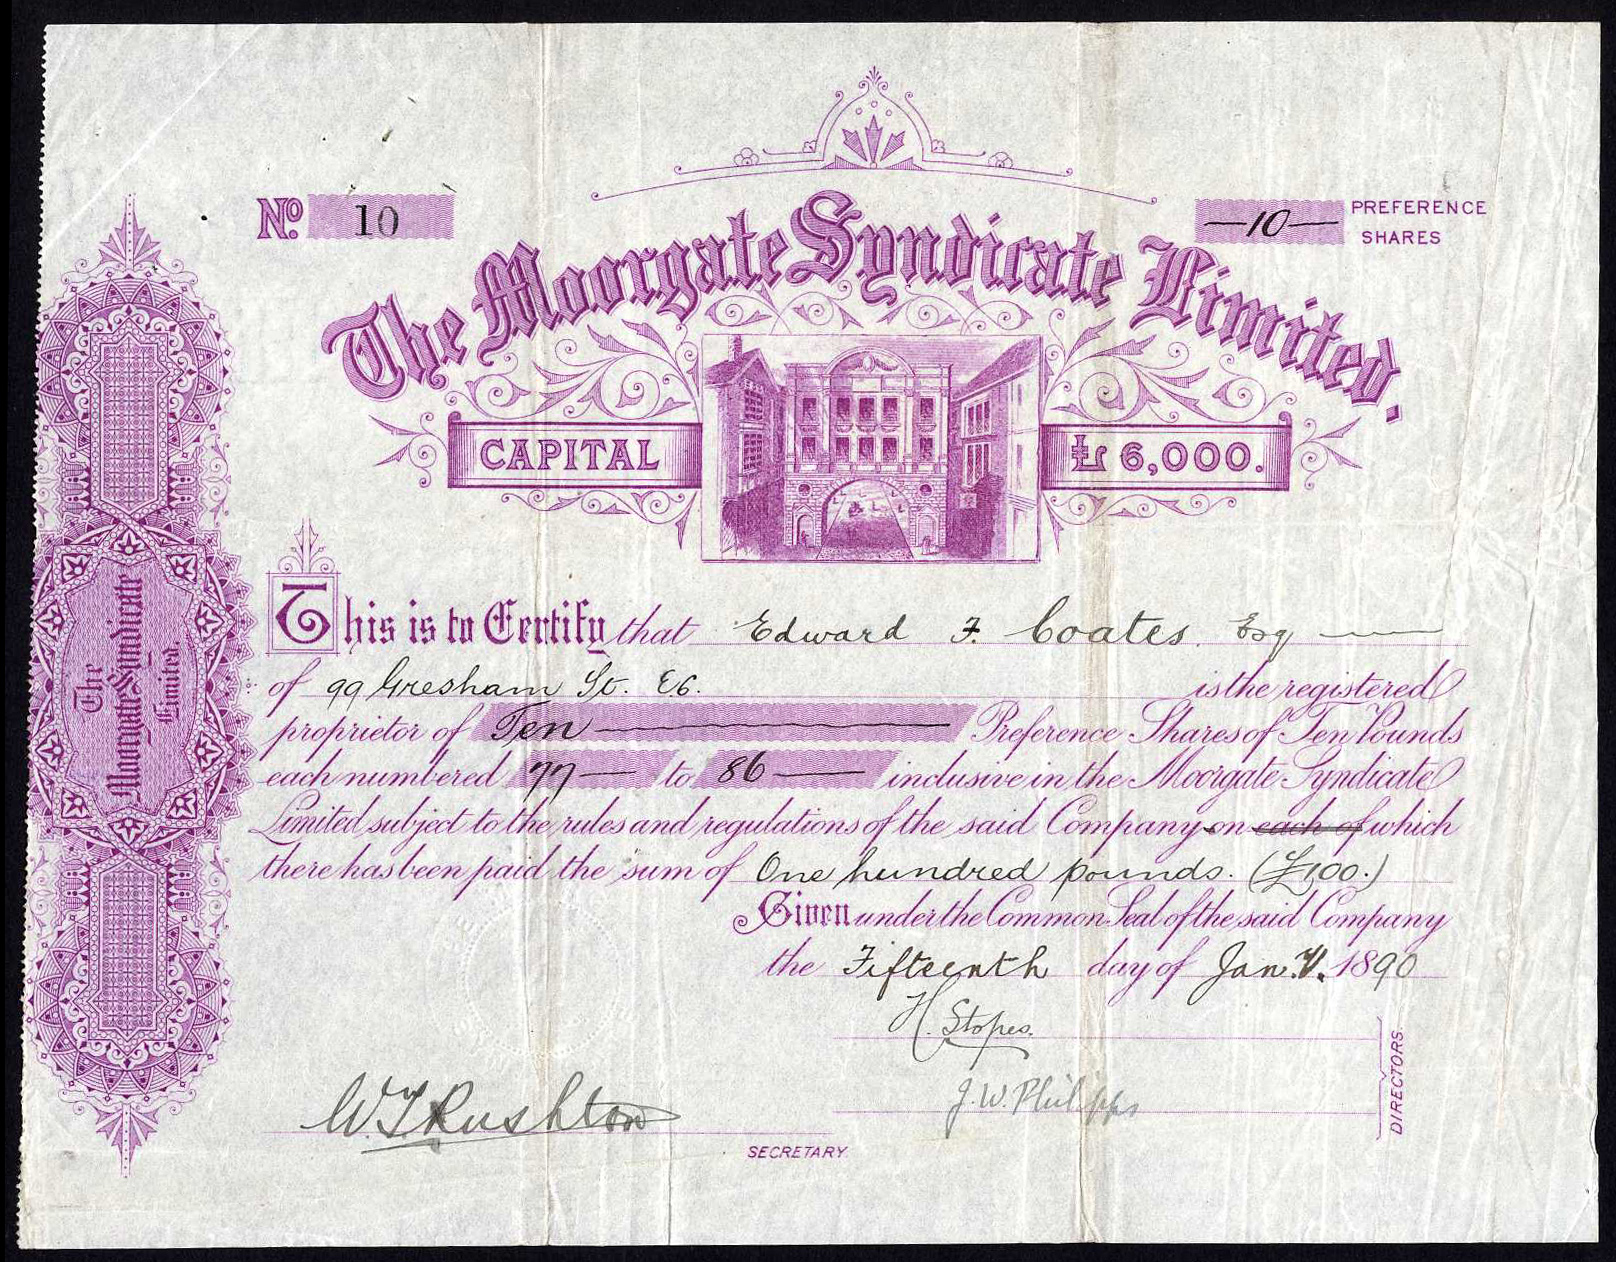 No. 10
—10— PREFERENCE SHARES
The Moorgate Syndicate Limited.
CAPITAL £6,000.
The Moorgate Syndicate Limited.
This is to Certify that Edward F. Coates Esq
of 99 Gresham St. EC. is the registered
proprietor of Ten Preference Shares of Ten Pounds
each numbered 77 — to 86 — inclusive in the Moorgate Syndicate
Limited subject to the rules and regulations of the said Company on each of which
there has been paid the sum of One hundred pounds. (£100.)
Given under the Common Seal of the said Company
the Fifteenth day of Jany. 1890
H. Stopes.
J. W. Philipps
DIRECTORS.
W. T. Rushton
SECRETARY.